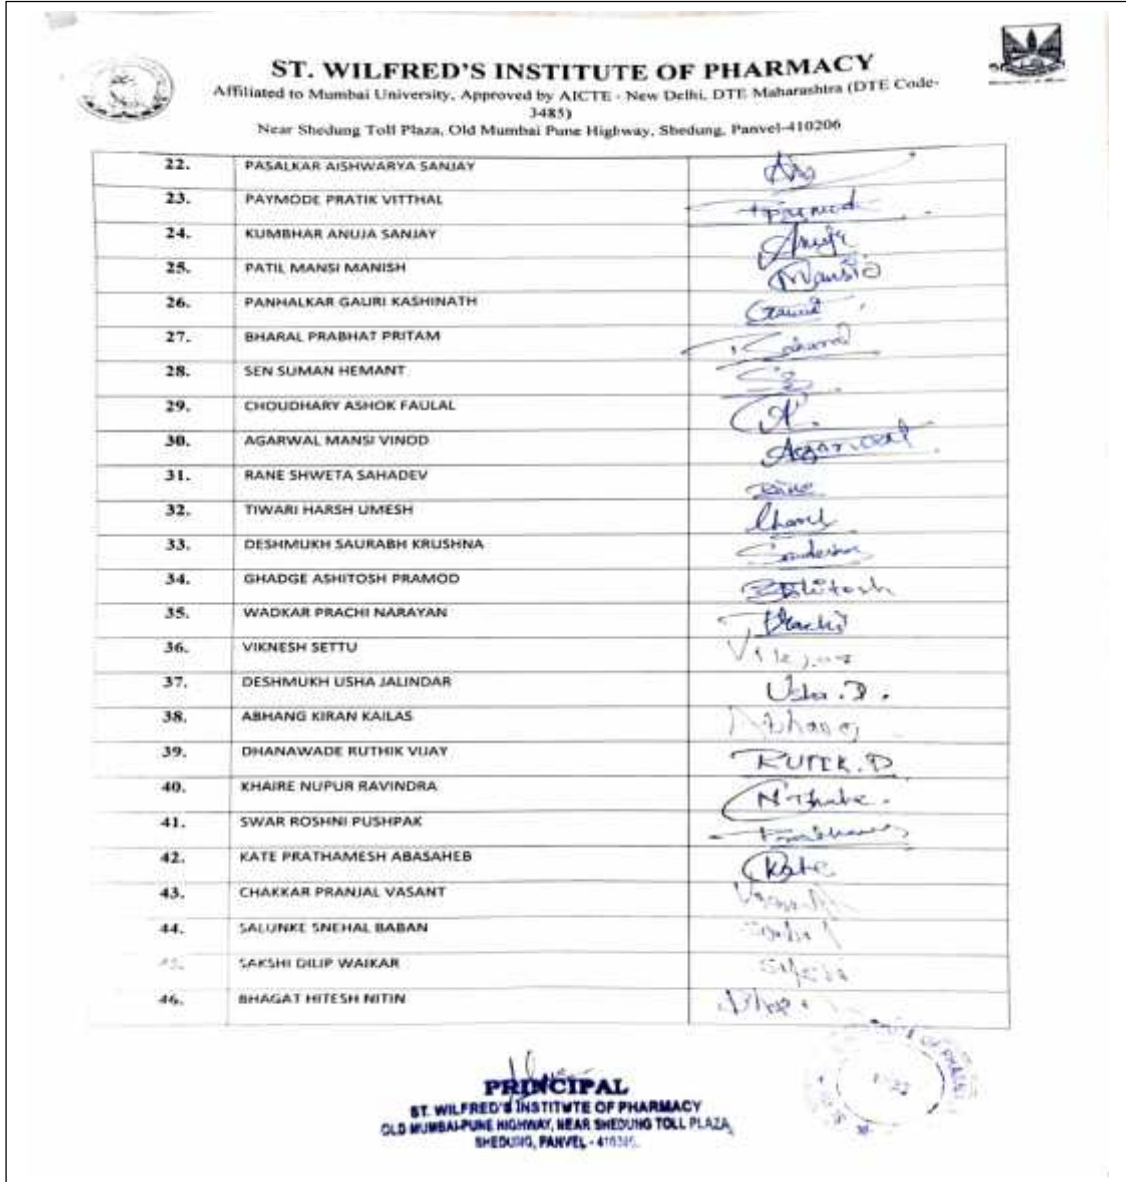 ST. WILFRED'S INSTITUTE OF PHARMACY
Affiliated to Mumbai University, Approved by AICTE - New Delhi, DTE Maharashtra (DTE Code-
3485)
Near Shedung Toll Plaza, Old Mumbai Pune Highway, Shedung, Panvel-410206
22. PASALKAR AISHWARYA SANJAY
23. PAYMODE PRATIK VITTHAL
24. KUMBHAR ANUJA SANJAY Anuja
25. PATIL MANSI MANISH Mansi
26. PANHALKAR GAURI KASHINATH
27. BHARAL PRABHAT PRITAM
28. SEN SUMAN HEMANT
29. CHOUDHARY ASHOK FAULAL
30. AGARWAL MANSI VINOD Agarwal
31. RANE SHWETA SAHADEV Rane
32. TIWARI HARSH UMESH
33. DESHMUKH SAURABH KRUSHNA
34. GHADGE ASHITOSH PRAMOD Ashitosh
35. WADKAR PRACHI NARAYAN Prachi
36. VIKNESH SETTU
37. DESHMUKH USHA JALINDAR Usha.D.
38. ABHANG KIRAN KAILAS Abhang
39. DHANAWADE RUTHIK VIJAY
40. KHAIRE NUPUR RAVINDRA
41. SWAR ROSHNI PUSHPAK
42. KATE PRATHAMESH ABASAHEB Kate
43. CHAKKAR PRANJAL VASANT
44. SALUNKE SNEHAL BABAN
45. SAKSHI DILIP WAIKAR
46. BHAGAT HITESH NITIN
PRINCIPAL
ST. WILFRED'S INSTITUTE OF PHARMACY
OLD MUMBAI-PUNE HIGHWAY, NEAR SHEDUNG TOLL PLAZA,
SHEDUNG, PANVEL -